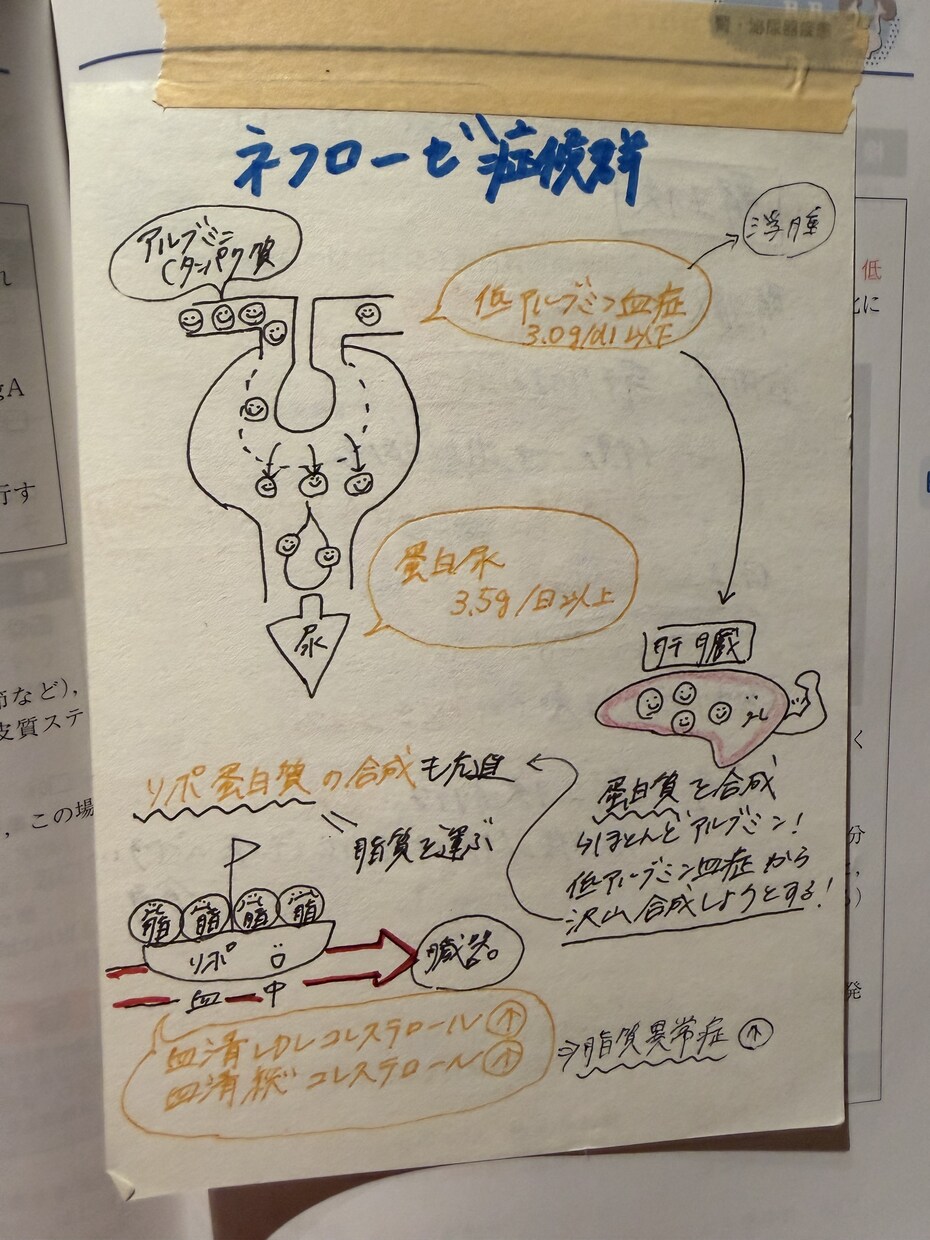 腎・泌尿器疾患
ネフローゼ症候群
アルブミン
(タンパク質
浮腫
低アルブミン血症
3.0g/dl以下
蛋白尿
3.5g/日以上
尿
肝臓
リポ蛋白質の合成も亢進
脂質を運ぶ
蛋白質を合成
↳ほとんどアルブミン!
低アルブミン血症から
沢山合成しようとする!
脂 脂 脂 脂
リポ
血中
臓器。
血清LDLコレステロール↑
血清総コレステロール↑
⇒脂質異常症↑
低
に
gA
行す
節など),
皮質ステ
, この場
く
分
発